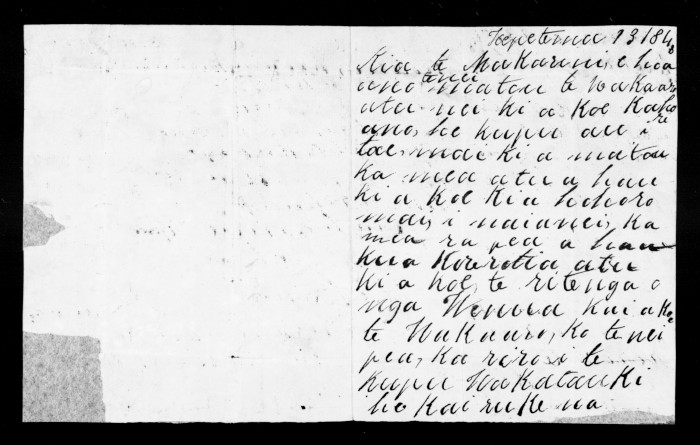 Hepetema 13 1848
Kia te Makarini, e hoa
ano tenei matou te wakaaro
atu nei ki a koe Kahore
ano, he kupu au i
tae, mai ki a matou
ka mea atu a hau
ki a koe kia hohoro
mai, i naianei, ka
mea ra pea a hau
kua Korerotia atu
ki a koe, te ritenga o
nga Wenua kai a koe
te Wakaaro, Ko te nei
pea, ka riro i te
kupu Wakatauki
he kai ruke na